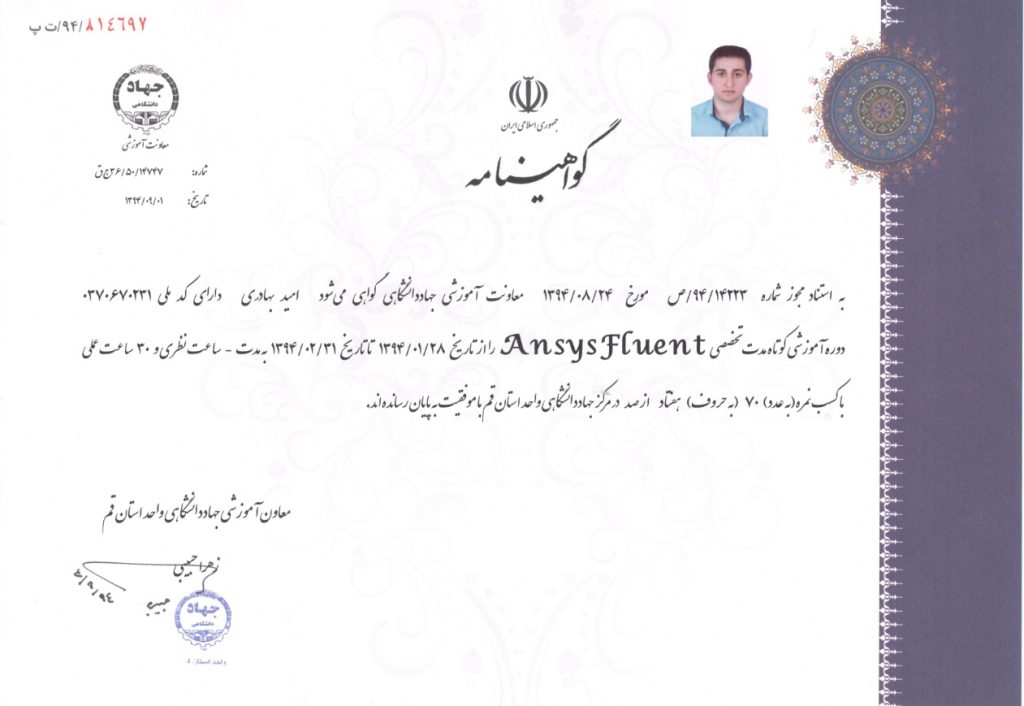 ۸۱٤٦۹۷/۹۴/ت پ
جهاد
دانشگاهی
معاونت آموزشی
شماره: ۳۶/۵۰/۱۴۷۴۷ج ق
تاریخ: ۱۳۹۴/۰۹/۰۱
جمهوری اسلامی ایران
گواهینامه
به استناد مجوز شماره ۹۴/۱۴۲۲۳/ص مورخ ۱۳۹۴/۰۸/۲۴ معاونت آموزشی جهاددانشگاهی گواهی می‌شود امید بهادری دارای کد ملی ۰۳۷۰۶۷۰۲۳۱
دوره آموزشی کوتاه مدت تخصصی AnsysFluent را از تاریخ ۱۳۹۴/۰۱/۲۸ تا تاریخ ۱۳۹۴/۰۲/۳۱ به مدت - ساعت نظری و ۳۰ ساعت عملی
با کسب نمره (به عدد) ۷۰ (به حروف) هفتاد از صد در مرکز جهاددانشگاهی واحد استان قم با موفقیت به پایان رسانده‌اند.
معاون آموزشی جهاددانشگاهی واحد استان قم
زهرا حبیبی
جهاد
دانشگاهی